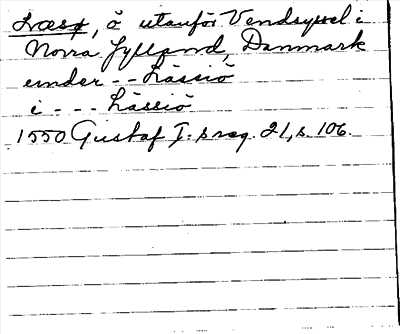 Læsø, ö utanför Vendsyssel i
Norra Jylland, Danmark
under -- Lässiö
i --- Lässiö
1550 Gustaf I. s reg. 21, s. 106.